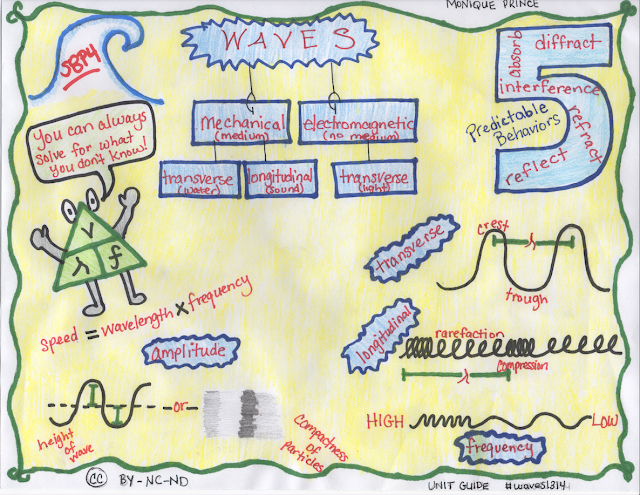 MONIQUE PRINCE
SBP4
WAVES
Absorb
diffract
interference
Predictable
Behaviors
refract
reflect
Mechanical
(medium)
electromagnetic
(no medium)
transverse
(water)
longitudinal
(sound)
transverse
(light)
You can always
solve for what
you don't know!
v
λ f
speed = wavelength x frequency
transverse
crest
λ
trough
longitudinal
rarefaction
compression
λ
amplitude
-or-
height
of
wave
compactness
of
particles
HIGH
LOW
frequency
CC BY-NC-ND
UNIT GUIDE #waves1314